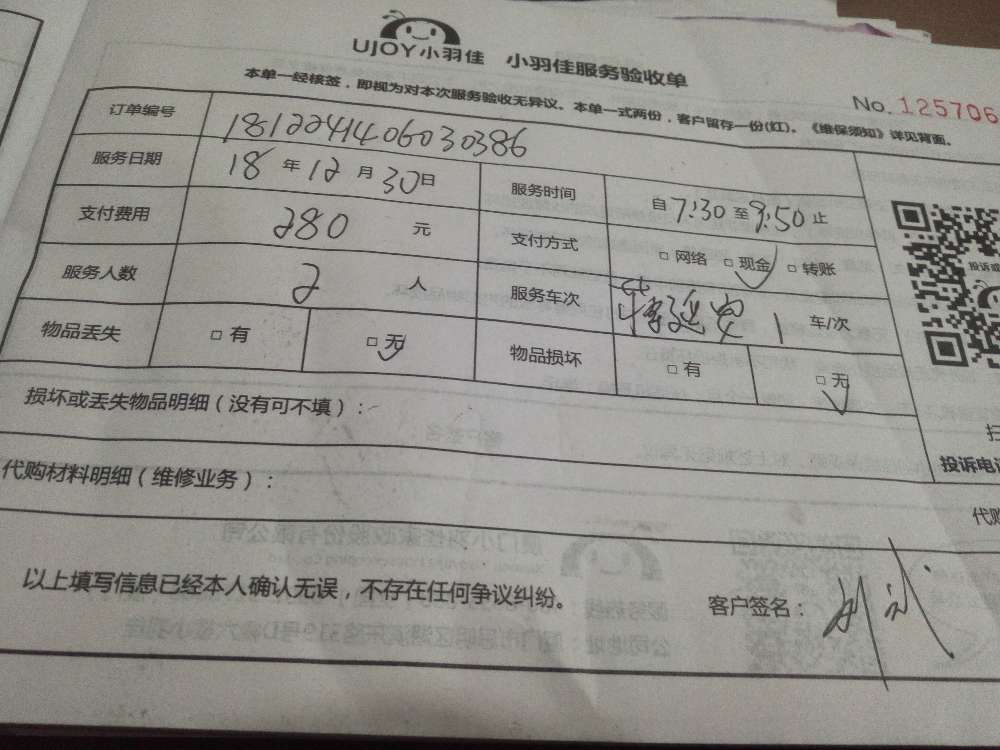 UJOY小羽佳 小羽佳服务验收单
No. 125706
本单一经核签，即视为对本次服务验收无异议。本单一式两份，客户留存一份(红)。《维保须知》详见背面。
订单编号 1812241406030386
服务日期 18 年 12 月 30 日 服务时间 自 7:30 至 9:50 止
支付费用 280 元 支付方式 □ 网络 □ 现金 □ 转账
服务人数 2 人 服务车次 1 车/次
物品丢失 □ 有 □ 无 物品损坏 □ 有 □ 无
损坏或丢失物品明细（没有可不填）：
投诉电
代购材料明细（维修业务）：
以上填写信息已经本人确认无误，不存在任何争议纠纷。 客户签名：